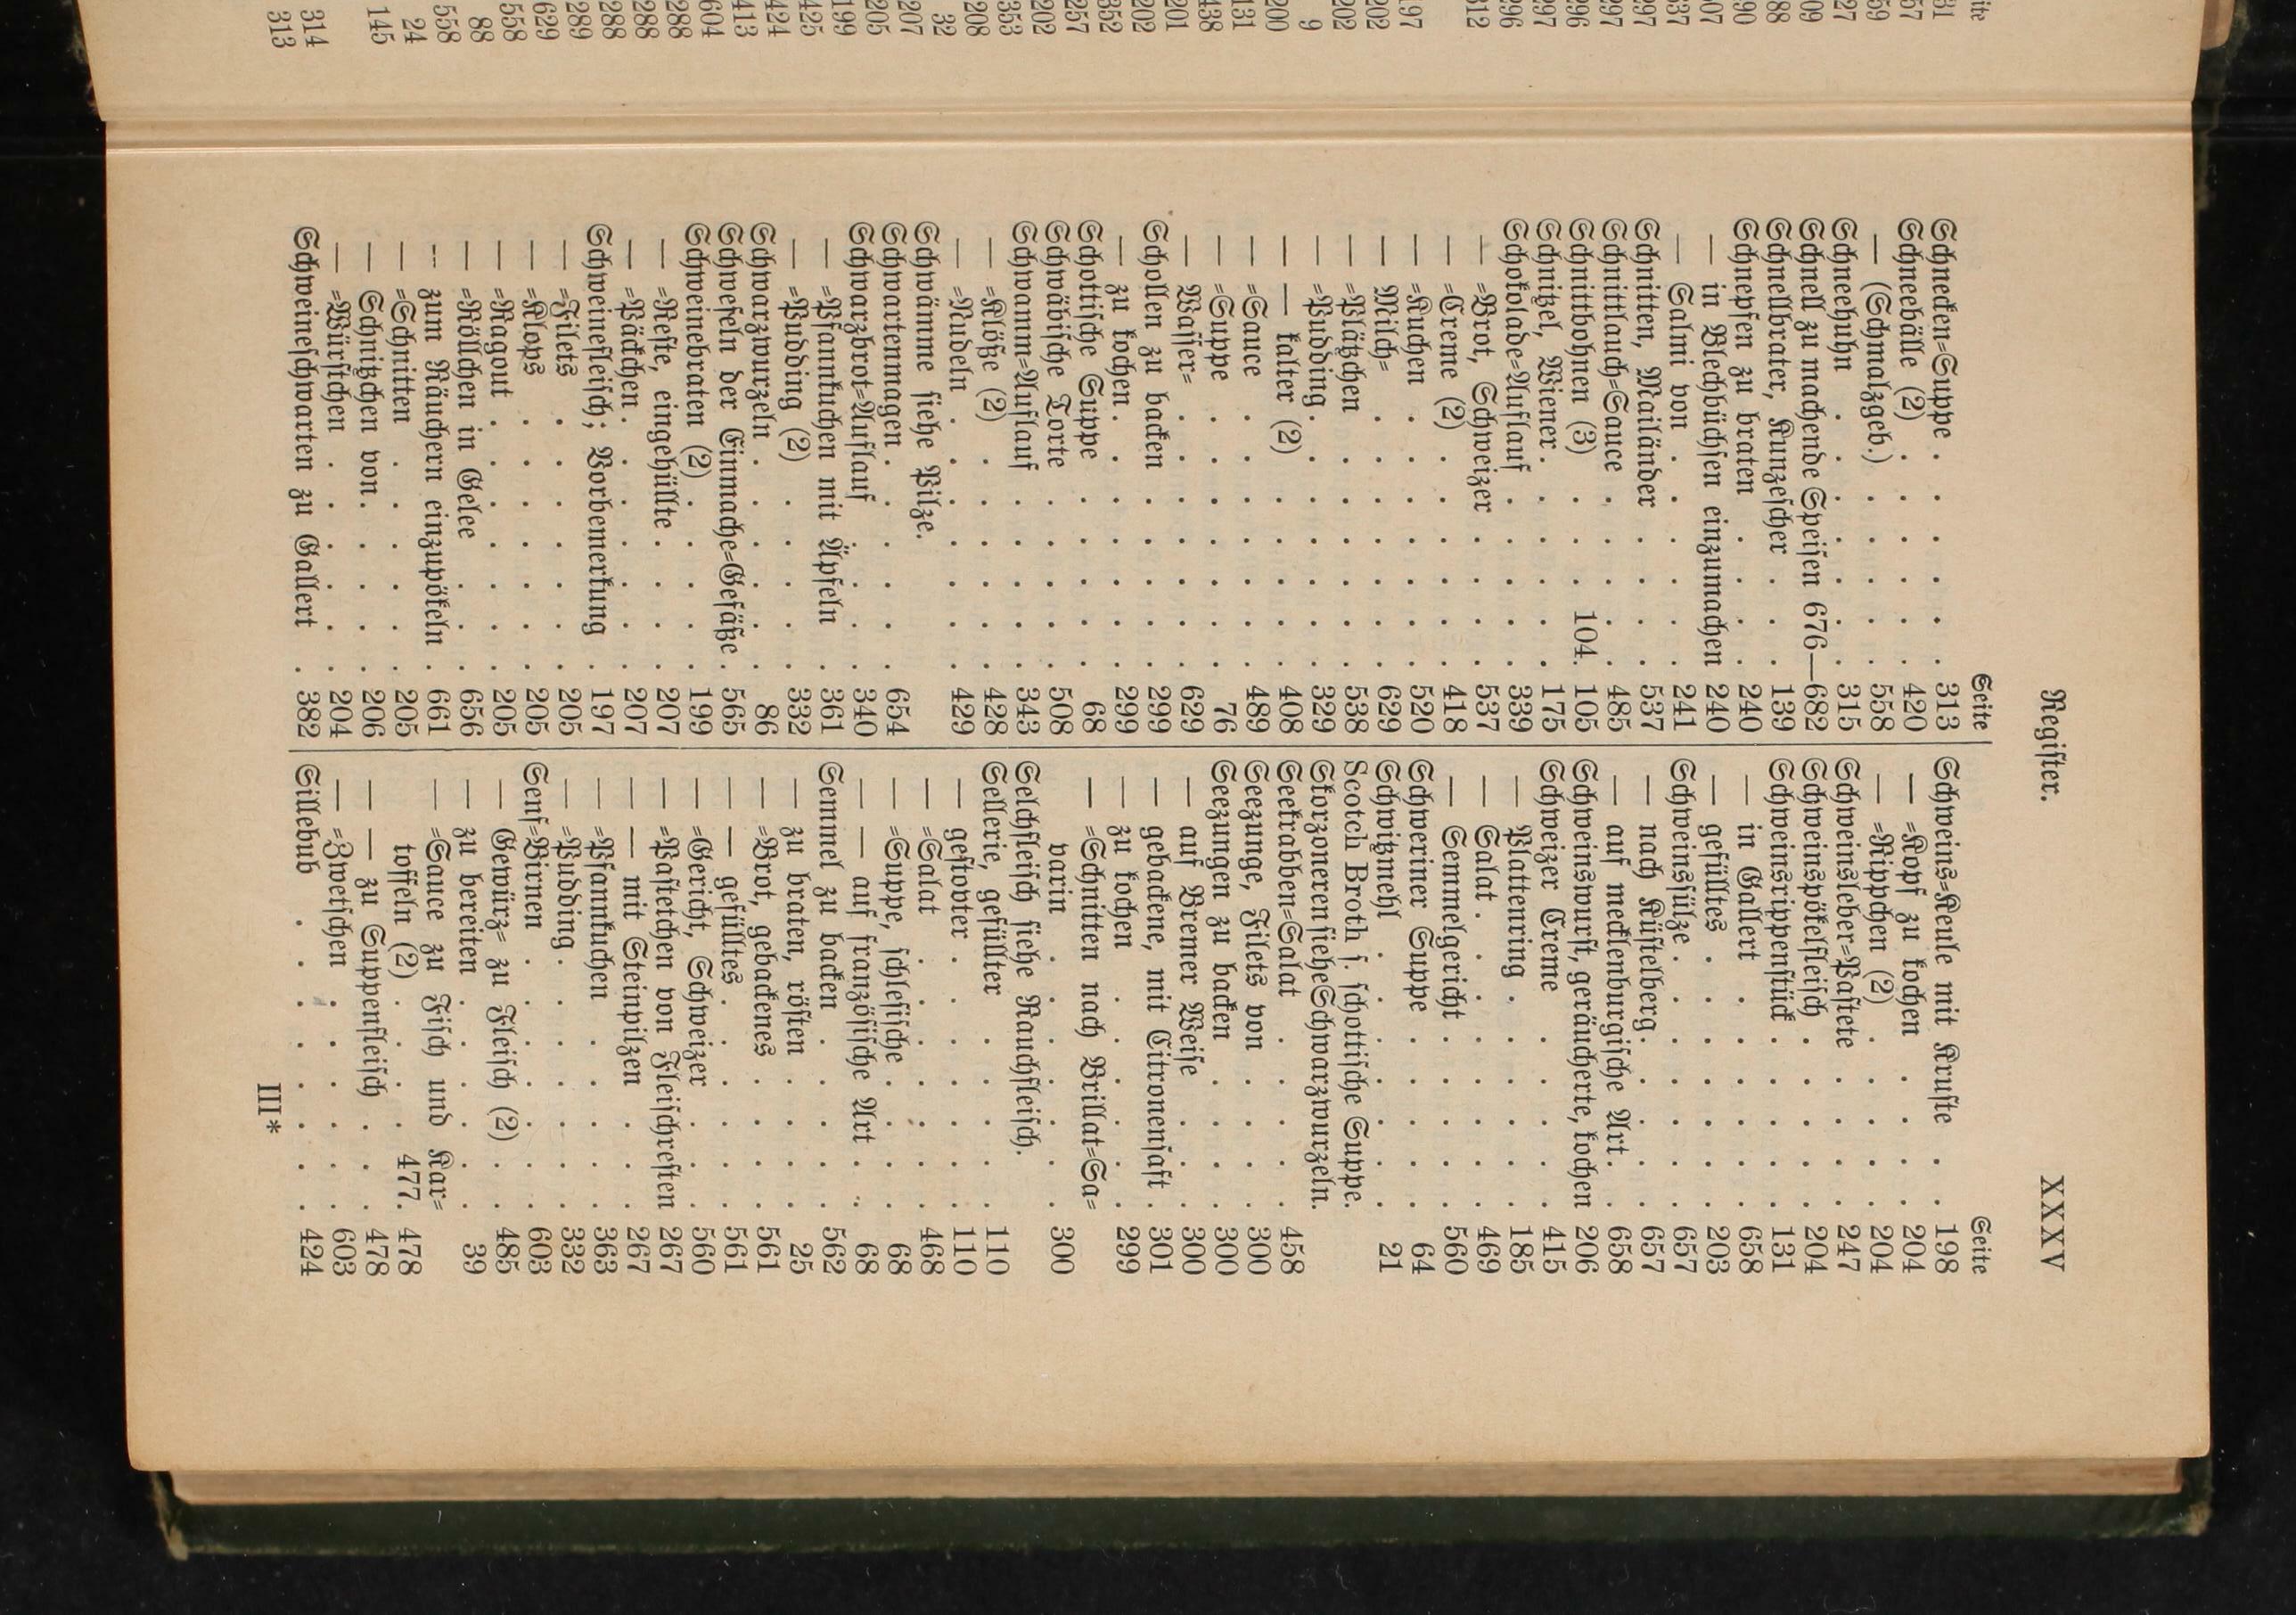 Register. XXXV
Seite
Schnecken=Suppe . . . . . . 313
Schneebälle (2) . . . . . . 420
— (Schmalzgeb.) . . . . . 558
Schneehuhn . . . . . . . 315
Schnell zu machende Speisen 676—682
Schnellbrater, Kunzescher . . . 139
Schnepfen zu braten . . . . . 240
— in Blechbüchsen einzumachen 240
— Salmi von . . . . . . 241
Schnitten, Mailänder . . . . 537
Schnittlauch=Sauce . . . . . 485
Schnittbohnen (3) . . . 104. 105
Schnitzel, Wiener . . . . . . 175
Schokolade=Auflauf . . . . . 339
— =Brot, Schweizer . . . . 537
— =Creme (2) . . . . . . 418
— =Kuchen . . . . . . . 520
— Milch= . . . . . . . 629
— =Plätzchen . . . . . . 538
— =Pudding . . . . . . . 329
— — kalter (2) . . . . . 408
— =Sauce . . . . . . . 489
— =Suppe . . . . . . . 76
— Wasser= . . . . . . . 629
Schollen zu backen . . . . . 299
— zu kochen . . . . . . . 299
Schottische Suppe . . . . . . 68
Schwäbische Torte . . . . . . 508
Schwamm=Auflauf . . . . . 343
— =Klöße (2) . . . . . . 428
— =Nudeln . . . . . . . 429
Schwämme siehe Pilze.
Schwartenmagen . . . . . . 654
Schwarzbrot=Auflauf . . . . 340
— =Pfannkuchen mit Äpfeln . 361
— =Pudding (2) . . . . . 332
Schwarzwurzeln . . . . . . 86
Schwefeln der Einmache=Gefäße . 565
Schweinebraten (2) . . . . . 199
— =Reste, eingehüllte . . . . 207
— =Päckchen . . . . . . . 207
Schweinefleisch; Vorbemerkung . 197
— =Filets . . . . . . . 205
— =Klops . . . . . . . 205
— =Ragout . . . . . . . 205
— =Röllchen in Gelee . . . 656
-- zum Räuchern einzupökeln . 661
— =Schnitten . . . . . . 205
— Schnitzchen von . . . . . 206
— =Würstchen . . . . . . 204
Schweineschwarten zu Gallert . 382
Seite
Schweins=Keule mit Kruste . . 198
— =Kopf zu kochen . . . . 204
— =Rippchen (2) . . . . . 204
Schweinsleber=Pastete . . . . 247
Schweinspökelfleisch . . . . . 204
Schweinsrippenstück . . . . . 131
— in Gallert . . . . . . 658
— gefülltes . . . . . . . 203
Schweinssülze . . . . . . . 657
— nach Küstelberg . . . . . 657
— auf mecklenburgische Art . . 658
Schweinswurst, geräucherte, kochen 206
Schweizer Creme . . . . . . 415
— Plattenring . . . . . . 185
— Salat . . . . . . . . 469
— Semmelgericht . . . . . 560
Schweriner Suppe . . . . . 64
Schwitzmehl . . . . . . . 21
Scotch Broth s. schottische Suppe.
Skorzoneren siehe Schwarzwurzeln.
Seekrabben=Salat . . . . . 458
Seezunge, Filets von . . . . 300
Seezungen zu backen . . . . 300
— auf Bremer Weise . . . . 300
— gebackene, mit Citronensaft . 301
— zu kochen . . . . . . . 299
— =Schnitten nach Brillat=Sa=
varin . . . . . . . . 300
Selchfleisch siehe Rauchfleisch.
Sellerie, gefüllter . . . . . . 110
— gestovter . . . . . . . 110
— =Salat . . . . . . . 468
— =Suppe, schlesische . . . . 68
— — auf französische Art . . 68
Semmel zu backen . . . . . 562
— zu braten, rösten . . . . 25
— =Brot, gebackenes . . . . 561
— — gefülltes . . . . . . 561
— =Gericht, Schweizer . . . 560
— =Pastetchen von Fleischresten 267
— — mit Steinpilzen . . . 267
— =Pfannkuchen . . . . . 363
— =Pudding . . . . . . . 332
Senf=Birnen . . . . . . . 603
— Gewürz= zu Fleisch (2) . . 485
— zu bereiten . . . . . . 39
— =Sauce zu Fisch und Kar=
toffeln (2) . . . . 477. 478
— — zu Suppenfleisch . . . 478
— =Zwetschen . . . . . . 603
Sillebub . . . . . . . . 424
III*
314
313
145
24
558
88
558
629
289
288
288
288
604